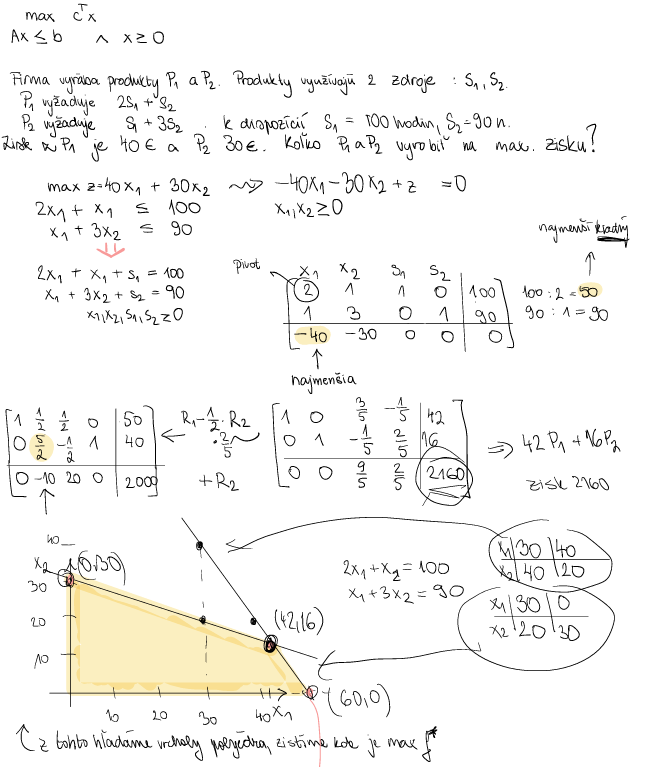 max cᵀx
Ax ≤ b ∧ x ≥ 0
Firma vyrába produkty P₁ a P₂. Produkty využívajú 2 zdroje : S₁, S₂.
P₁ vyžaduje 2S₁ + S₂
P₂ vyžaduje S₁ + 3S₂ . k dispozícií S₁ = 100 hodín, S₂ = 90 h.
Zisk z P₁ je 40 € a P₂ 30 €. Koľko P₁ a P₂ vyrobiť na max. zisku?
max z = 40x₁ + 30x₂ ⇝ -40x₁ - 30x₂ + z = 0
2x₁ + x₁ ≤ 100 x₁,x₂ ≥ 0
x₁ + 3x₂ ≤ 90
najmenší kladný
2x₁ + x₁ + s₁ = 100
x₁ + 3x₂ + s₂ = 90
x₁,x₂,s₁,s₂ ≥ 0
pivot
x₁ x₂ s₁ s₂
2 1 1 0 | 100 100 : 2 = 50
1 3 0 1 | 90 90 : 1 = 90
-40 -30 0 0 | 0
najmenšia
1 1/2 1/2 0 | 50
0 5/2 -1/2 1 | 40
0 -10 20 0 | 2000
R₁ - 1/2 · R₂
· 2/5
+ R₂
1 0 3/5 -1/5 | 42
0 1 -1/5 2/5 | 16
0 0 9/5 2/5 | 2160
⇒ 42 P₁ + 16 P₂
zisk 2160
40
x₂
(0,30)
30
20
10
10 20 30 40 x₁
(42,16)
(60,0)
2x₁ + x₂ = 100
x₁ + 3x₂ = 90
x₁ | 30 | 40
x₂ | 40 | 20
x₁ | 30 | 0
x₂ | 20 | 30
z tohto hľadáme vrcholy polyédra, zistíme kde je max f*